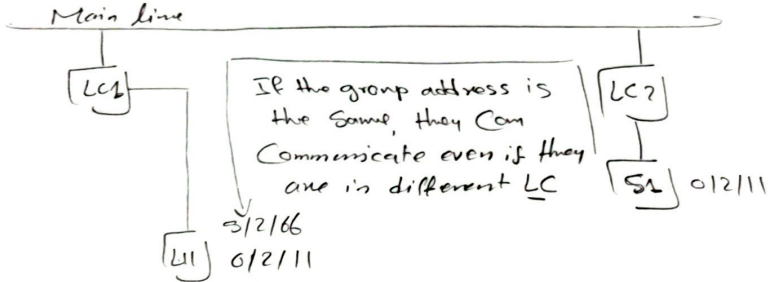 Main line
LC1
If the group address is
the same, they can
Communicate even if they
are in different LC
LC2
S1 0/2/11
3/2/66
0/2/11